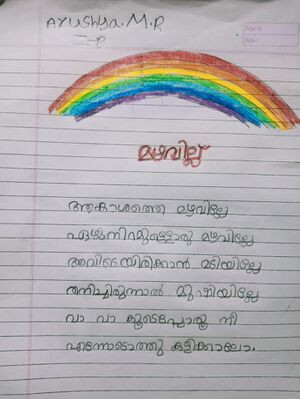 Ayushya.M.R
II-B
Page No:
Date:
മഴവില്ല്
ആകാശത്തെ മഴവില്ലേ
ഏഴുനിറമുള്ളൊരു മഴവില്ലേ
അവിടെയിരിക്കാൻ മടിയില്ലേ
തനിച്ചിരുന്നാൽ മുഷിയില്ലേ
വാ വാ കൂടെപ്പോരൂ നീ
എന്നോടൊത്തു കളിക്കാലോ.